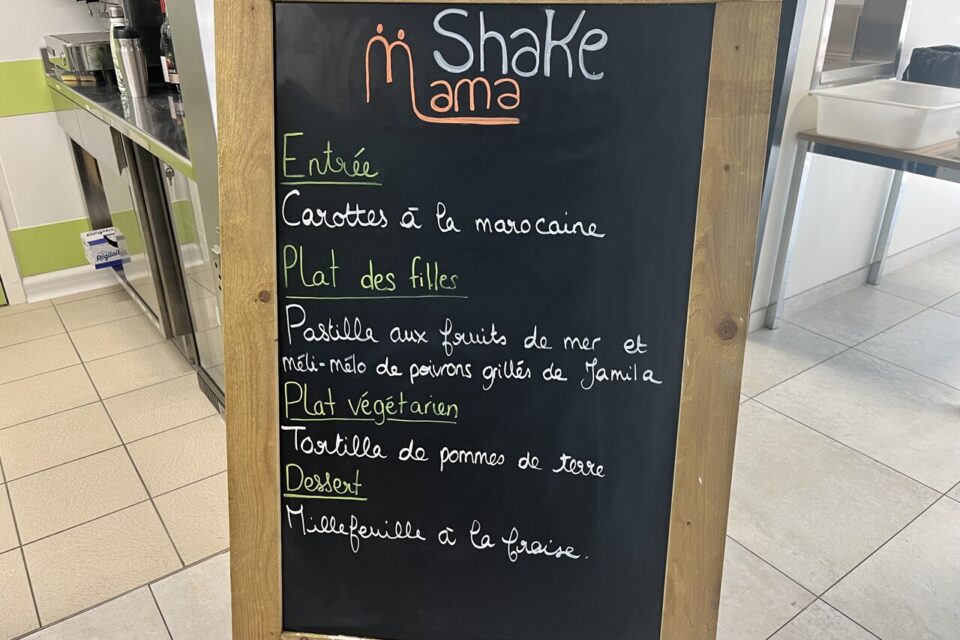 Shake
Mama
Entrée
Carottes à la marocaine
Plat des filles
Pastilla aux fruits de mer et
méli-mélo de poivrons grillés de Jamila
Plat végétarien
Tortilla de pommes de terre
Dessert
Millefeuille à la fraise.
Régilait